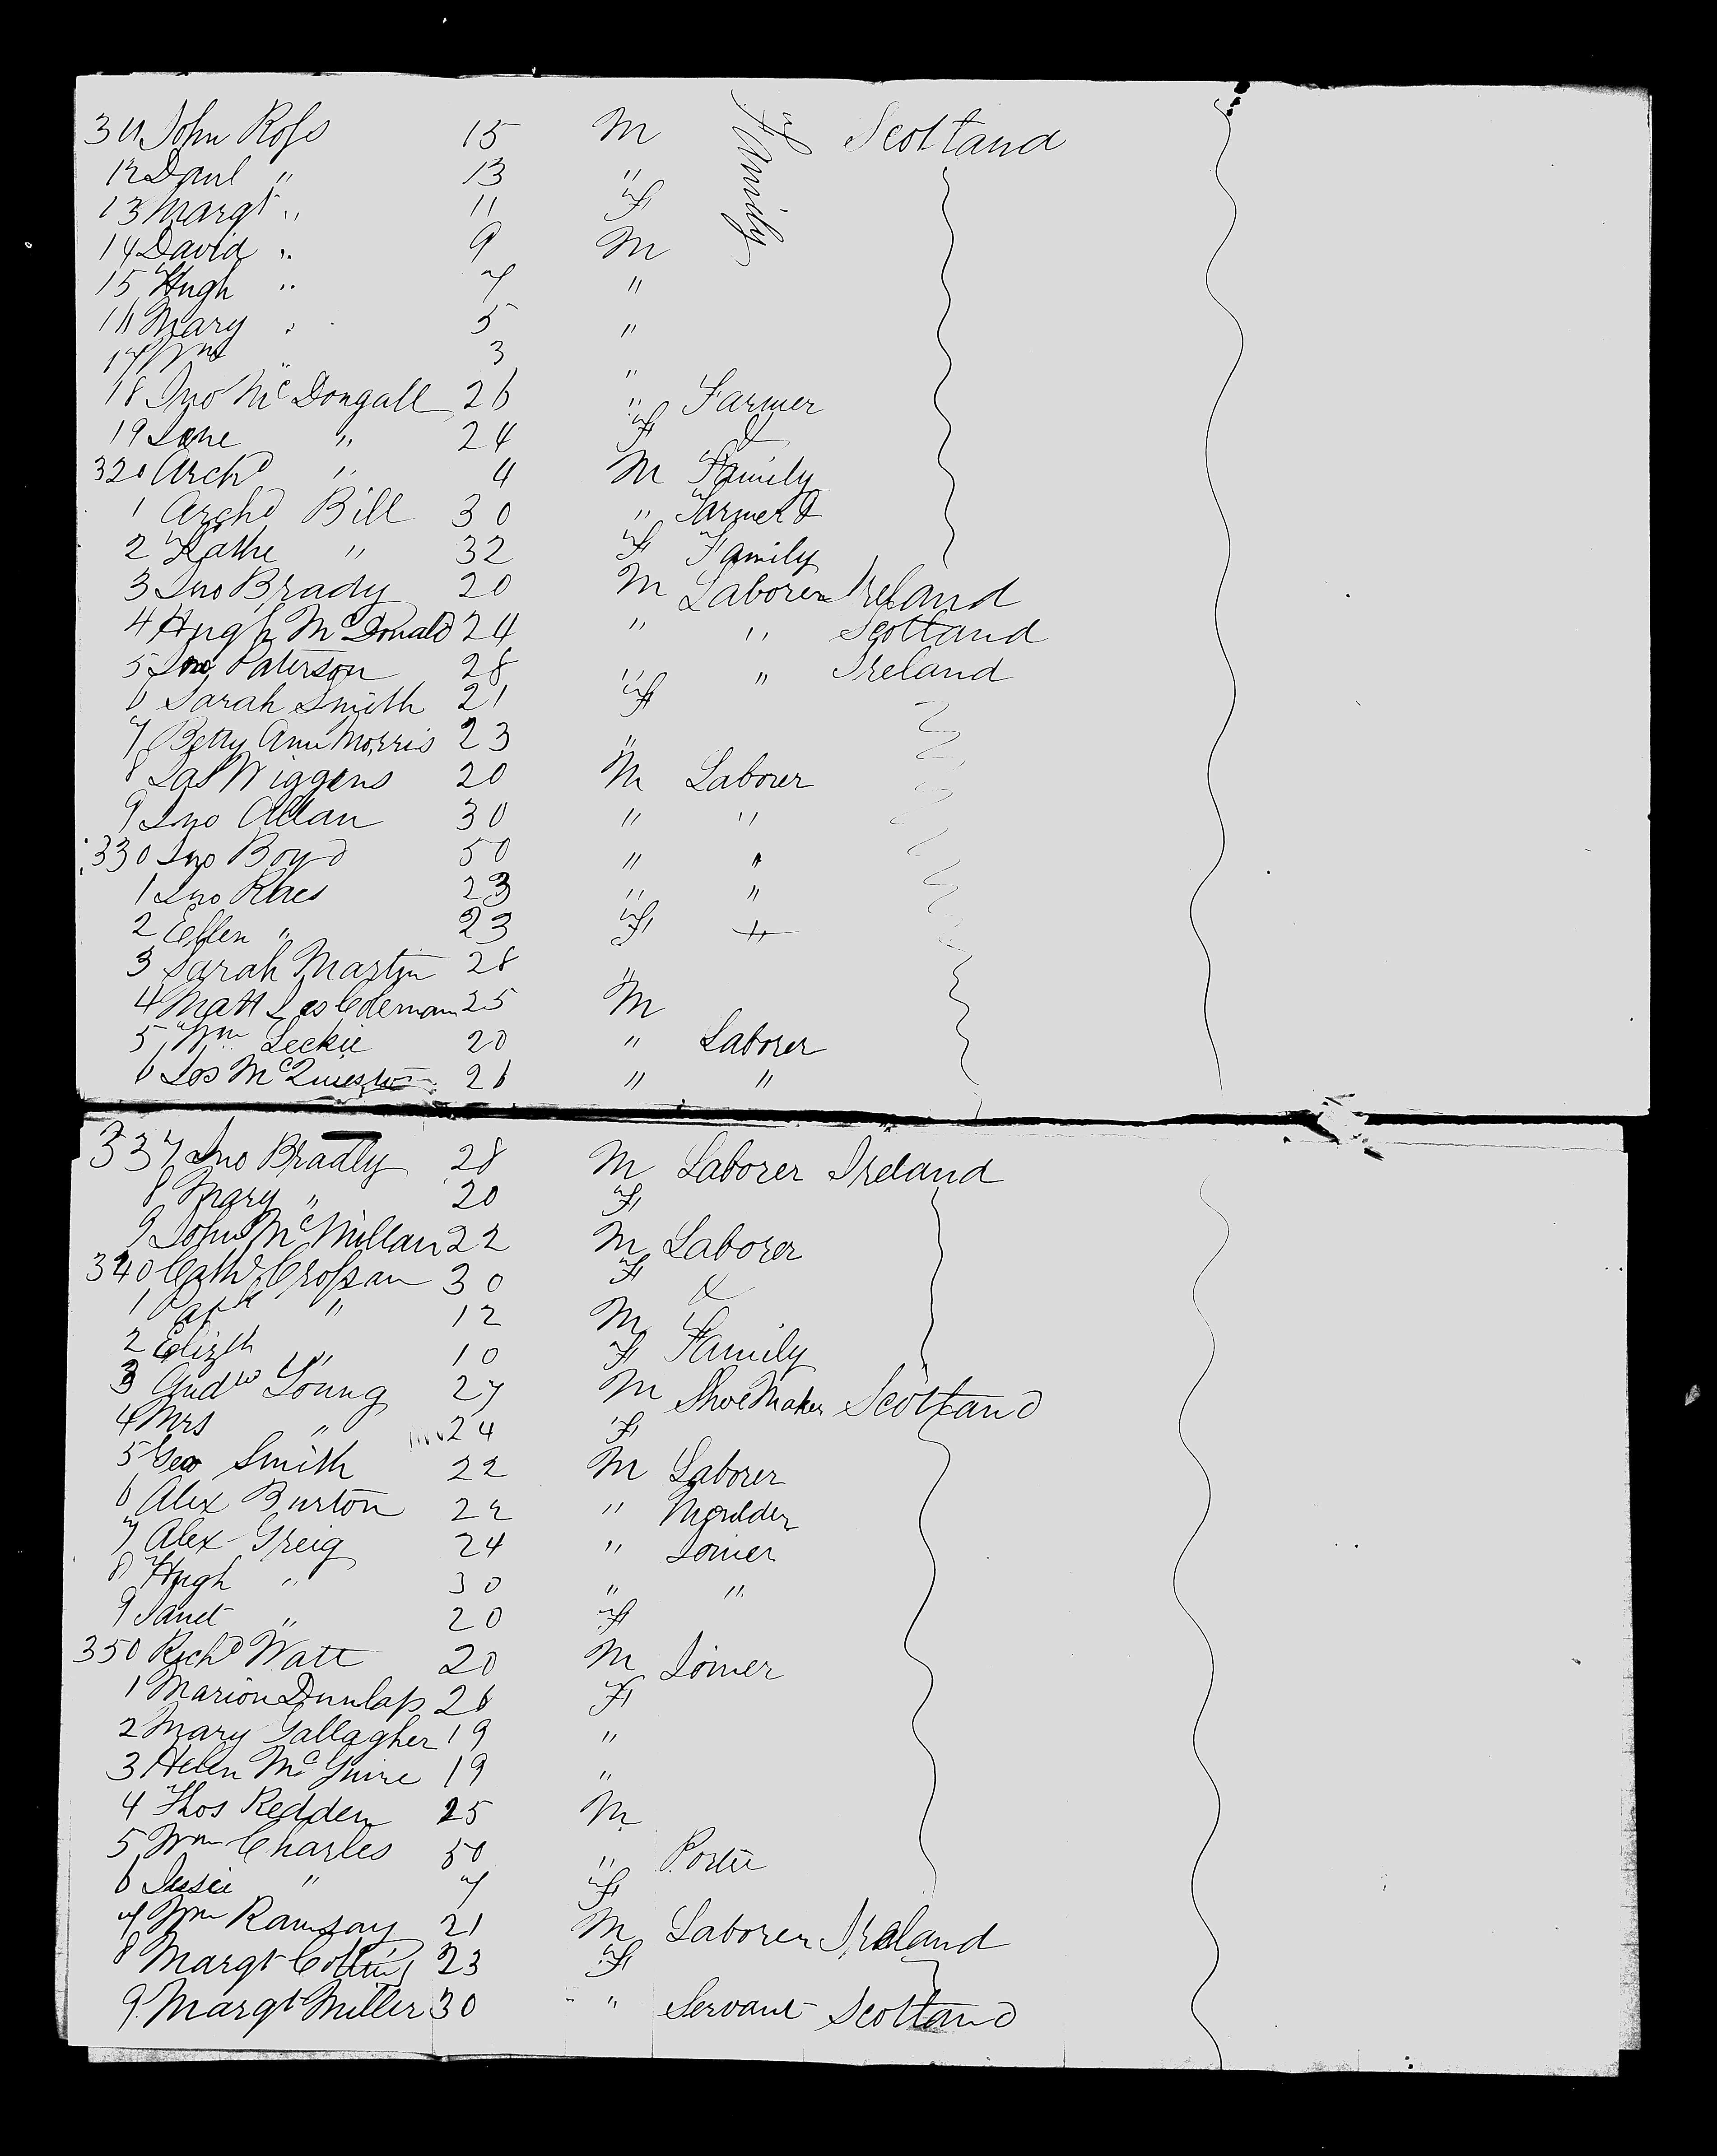 311 John Ross 15 M Family Scotland
12 Danl " 13 "
13 Margt " 11 F
14 David " 9 M
15 Hugh " 7 "
16 Mary " 5 "
17 Wm " 3 "
18 Jno McDougall 26 " Farmer
19 Jane " 24 F &
320 Archd " 4 M Family
1 Archd Bill 30 " Farmer &
2 Kathe " 32 F Family
3 Jno Brady 20 M Laborer Ireland
4 Hugh McDonald 24 " " Scotland
5 Jno Paterson 28 " " Ireland
6 Sarah Smith 21 F
7 Betty Ann Morris 23 "
8 Jas Wiggins 20 M Laborer
9 Jno Allan 30 " "
330 Jno Boyd 50 " "
1 Jno Rhes 23 " "
2 Ellen " 23 F "
3 Sarah Martin 28 "
4 Matt 25 M
5 Wm Leckie 20 " Laborer
6 Jos 26 " "
337 Jno Bradly 28 M Laborer Ireland
8 Mary " 20 F
9 John McMillan 22 M Laborer
340 Cathe Crossan 30 F &
1 Patk " 12 M
2 Elizth " 10 F Family
3 Andw Young 27 M Shoe Maker Scotland
4 Mrs " 24 F
5 Geo Smith 22 M Laborer
6 Alex Burton 22 " Moulder
7 Alex Greig 24 " Joiner
8 Hugh " 30 " "
9 Janet " 20 F
350 Richd Watt 20 M Joiner
1 Marion Dunlap 26 F
2 Mary Gallagher 19 "
3 Helen McGuire 19 "
4 Thos Redden 25 M
5 Wm Charles 50 " Porter
6 Jessie " 7 F
7 Wm Ramsay 21 M Laborer Ireland
8 Margt Collins 23 F
9 Margt Miller 30 " Servant Scotland